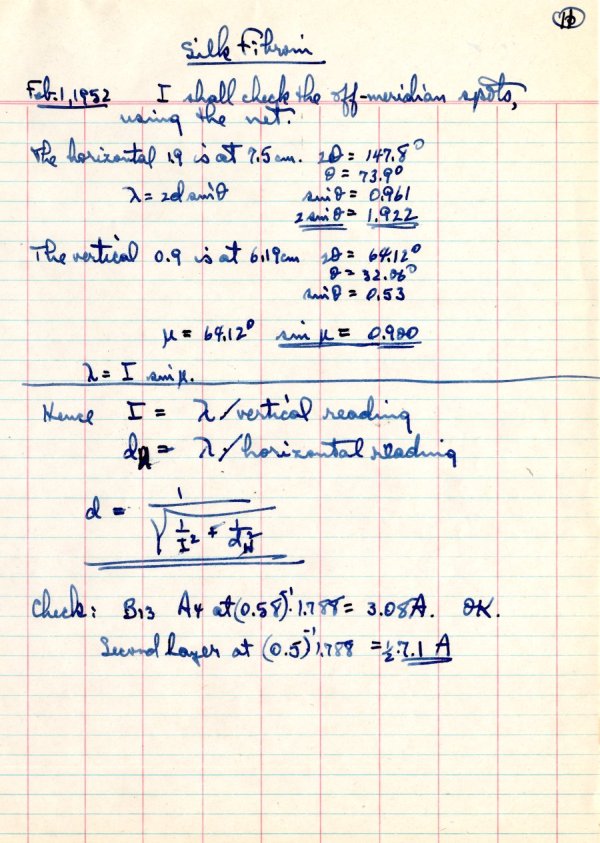 Silk Fibroin
Feb. 1, 1952 I shall check the off-meridian spots,
using the net.
The horizontal 1.9 is at 7.5 cm. 2θ = 147.8°
θ = 73.9°
λ = 2d sin θ sin θ = 0.961
2 sin θ = 1.922
The vertical 0.9 is at 6.19 cm 2θ = 64.12°
θ = 32.06°
sin θ = 0.53
μ = 64.12° sin μ = 0.900
λ = I sin μ.
Hence I = λ/vertical reading
d_H = λ/horizontal reading
d = 1 / √(1/I² + 1/d_H²)
Check: B13 A4 at (0.58)⁻¹·1.788 = 3.08 A. OK.
Second layer at (0.5)⁻¹1.788 = ½·7.1 A